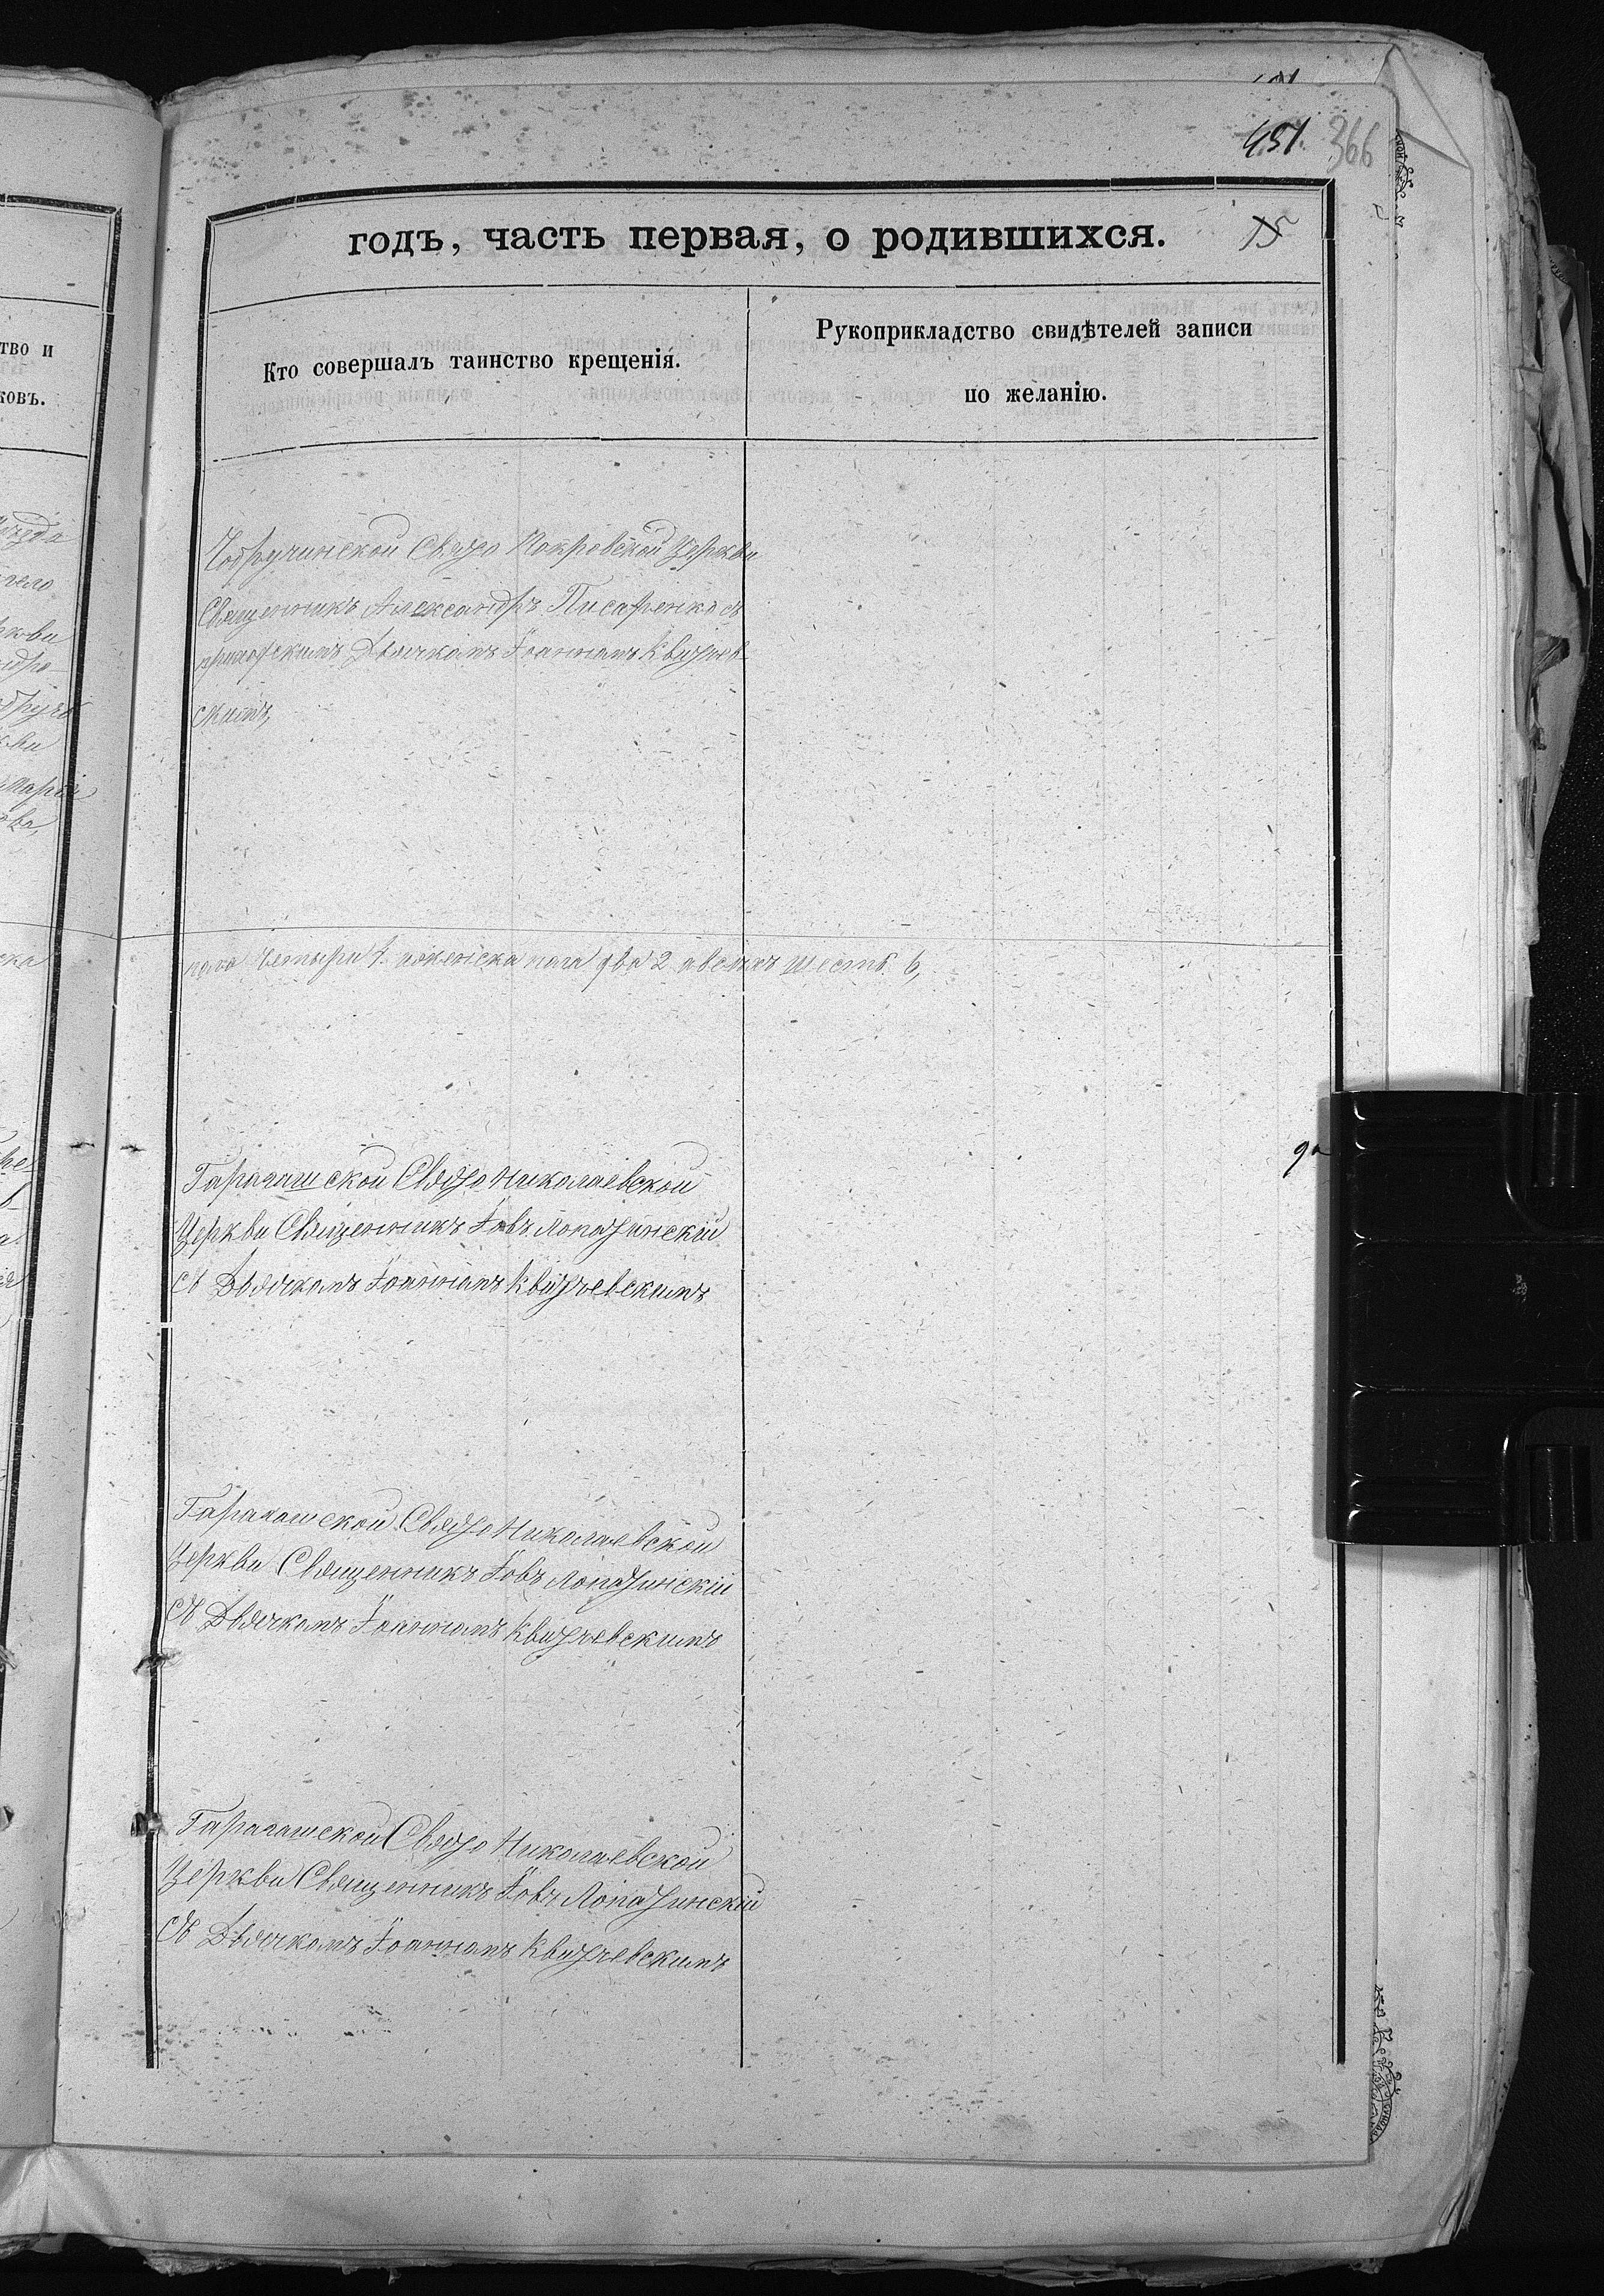 451. 366
годъ, часть первая, о родившихся. 15
Кто совершалъ таинство крещенія.
Рукоприкладство свидѣтелей записи
по желанію.
тво и
ковъ.
Чобручинской Свято Покровской Церкви
Священникъ Александръ Писаренко съ
приходскимъ Дьячкомъ Іоанномъ Квятков-
скимъ,
пола четыри 4. женска пола два 2 а всѣхъ шесть 6,
Гарагашской Свято Николаевской
Церкви Священникъ Іовъ Лопатинскій
съ Дьячкомъ Іоанномъ Квятковскимъ
Гарагашской Свято Николаевской
Церкви Священникъ Іовъ Лопатинскій
съ Дьячкомъ Іоанномъ Квятковскимъ
Гарагашской Свято Николаевской
Церкви Священникъ Іовъ Лопатинскій
съ Дьячкомъ Іоанномъ Квятковскимъ